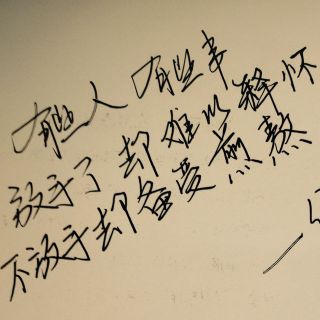 有些人 有些事
放手了 却难以释怀
不放手却备受煎熬